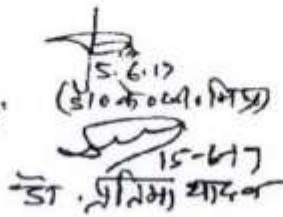 15.6.17
(डॉ० के० जी० मिश्रा)
15-6-17
डॉ. प्रतिमा यादव